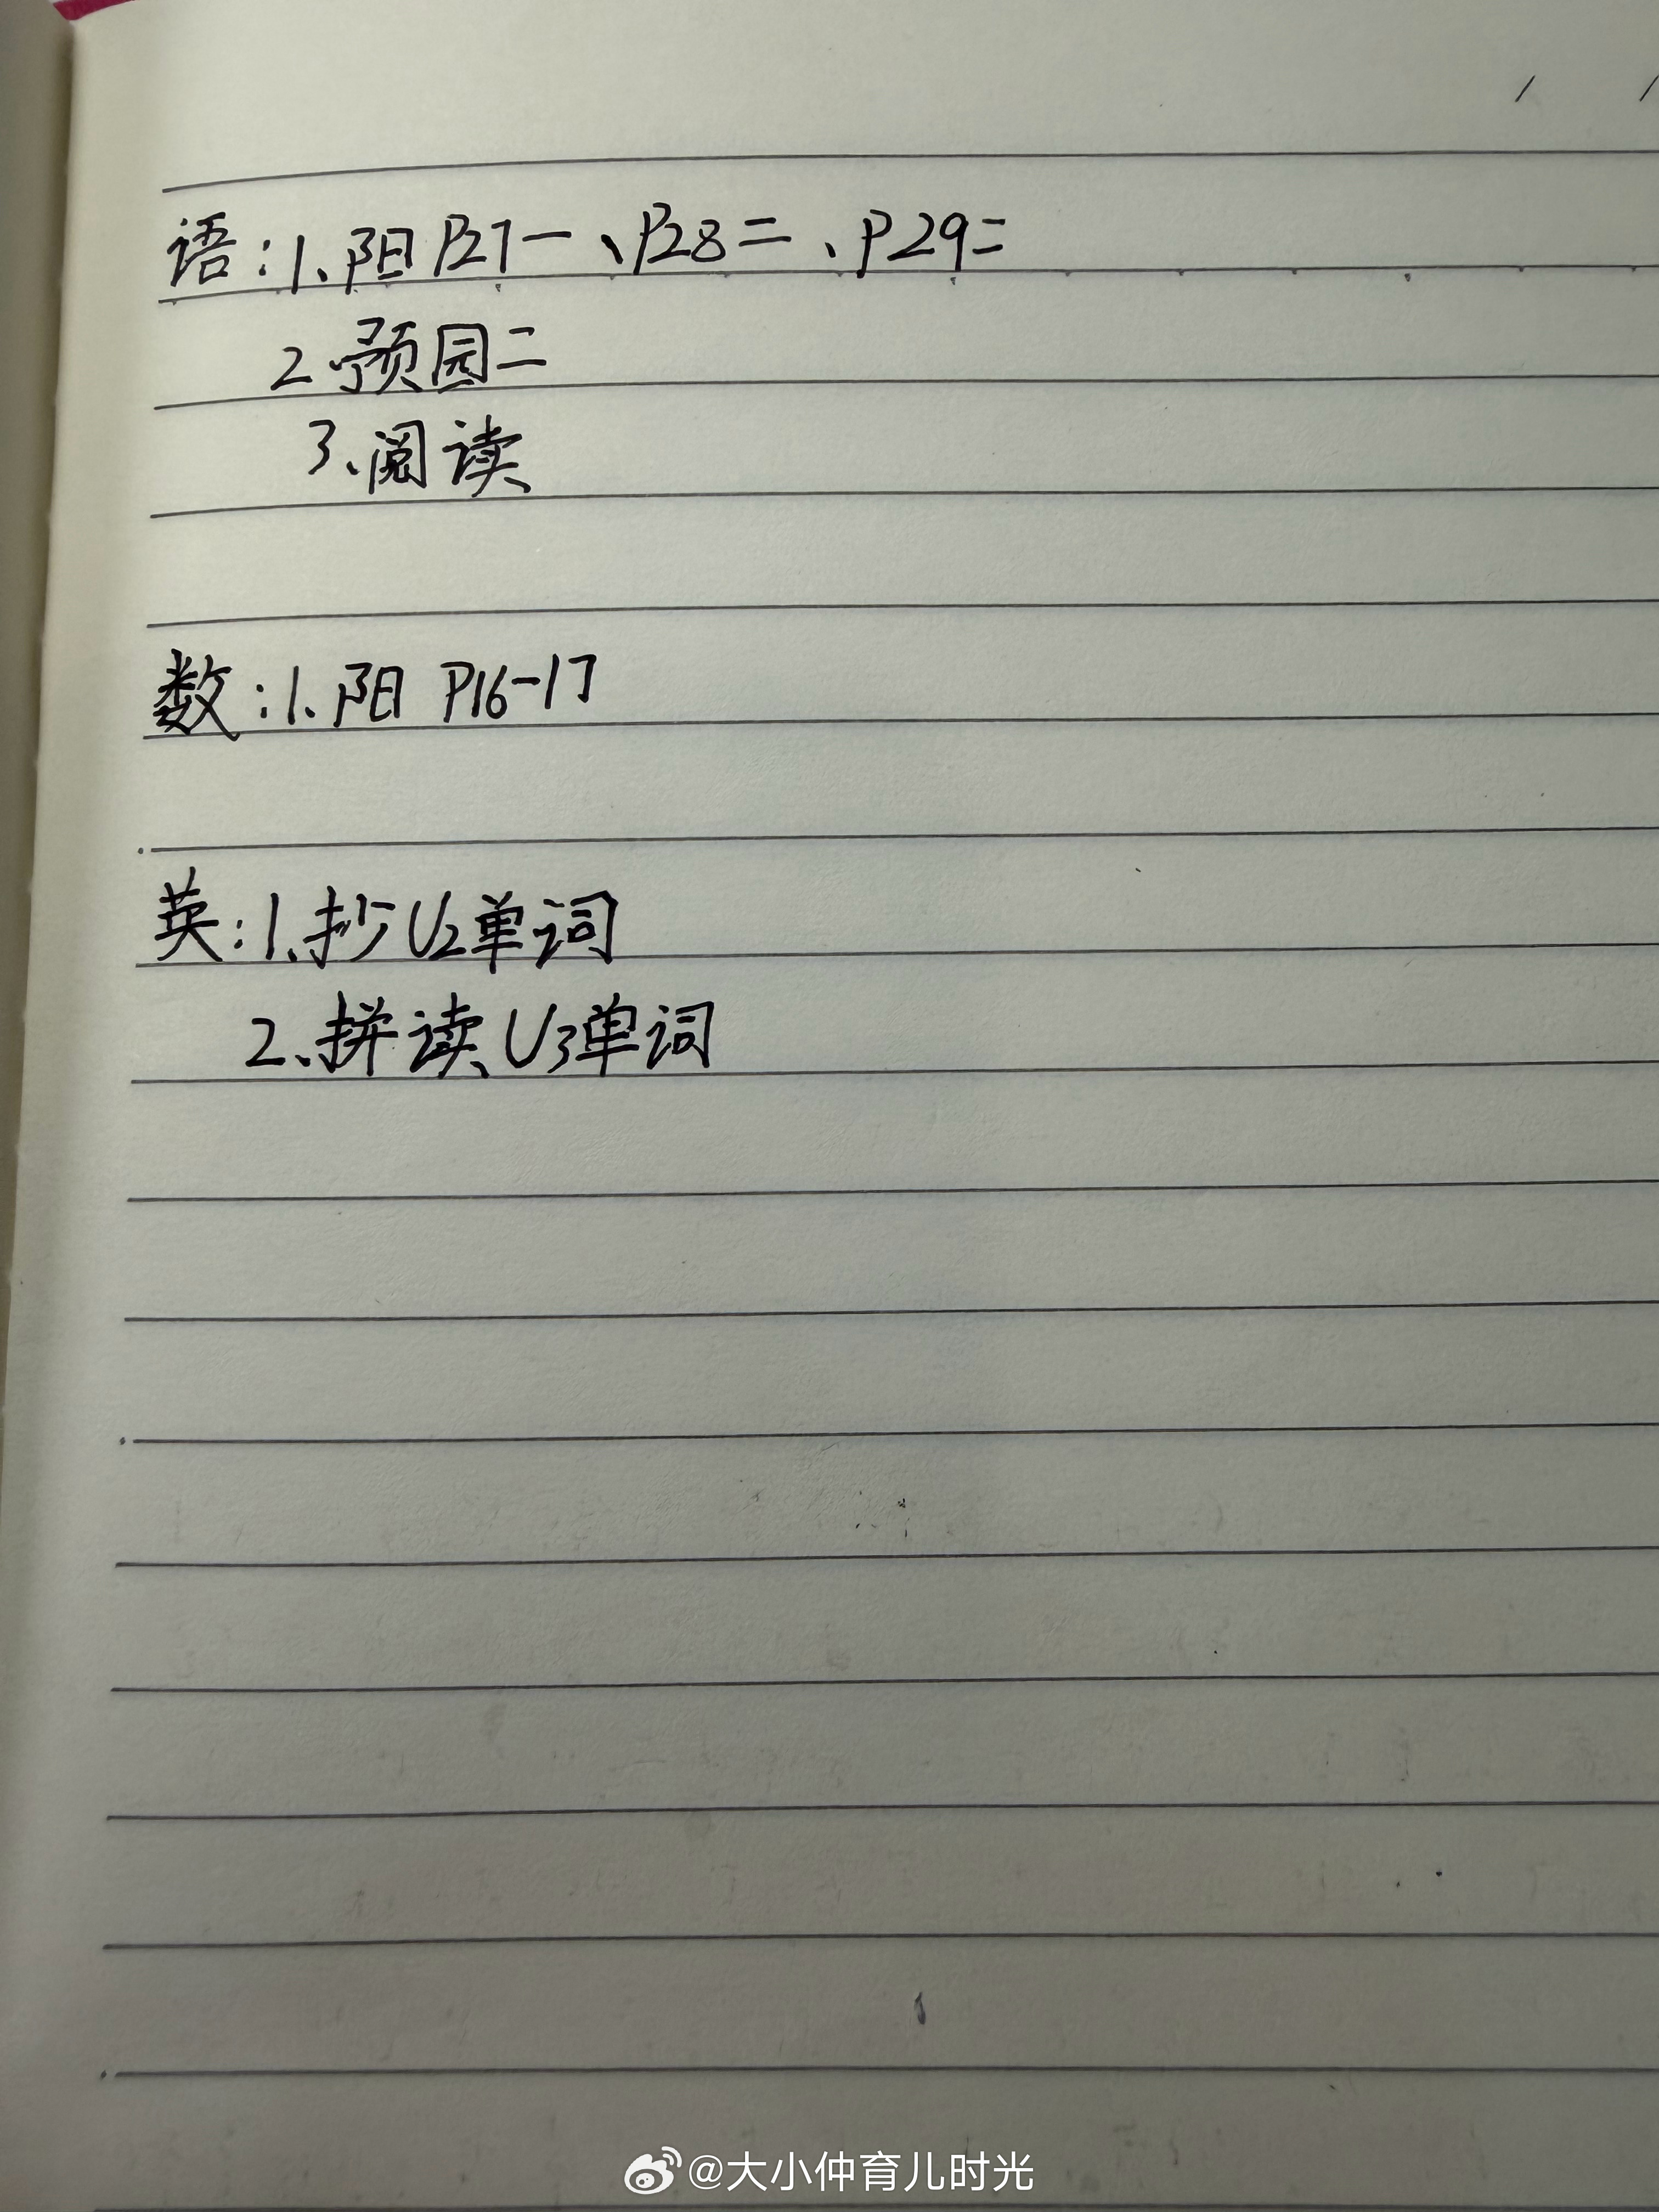 语:1、阳P27一、P28二、P29二
2、预园二
3、阅读
数:1、阳 P16-17
英:1、抄U2单词
2、拼读U3单词
@大小仲育儿时光